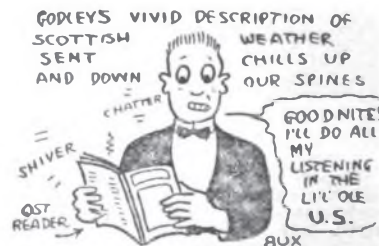 GODLEY'S VIVID DESCRIPTION OF
SCOTTISH WEATHER
SENT CHILLS UP
AND DOWN OUR SPINES
CHATTER
SHIVER
QST
READER
GOODNITE!
I'LL DO ALL
MY
LISTENING
IN THE
LI'L' OLE
U.S.
AUX